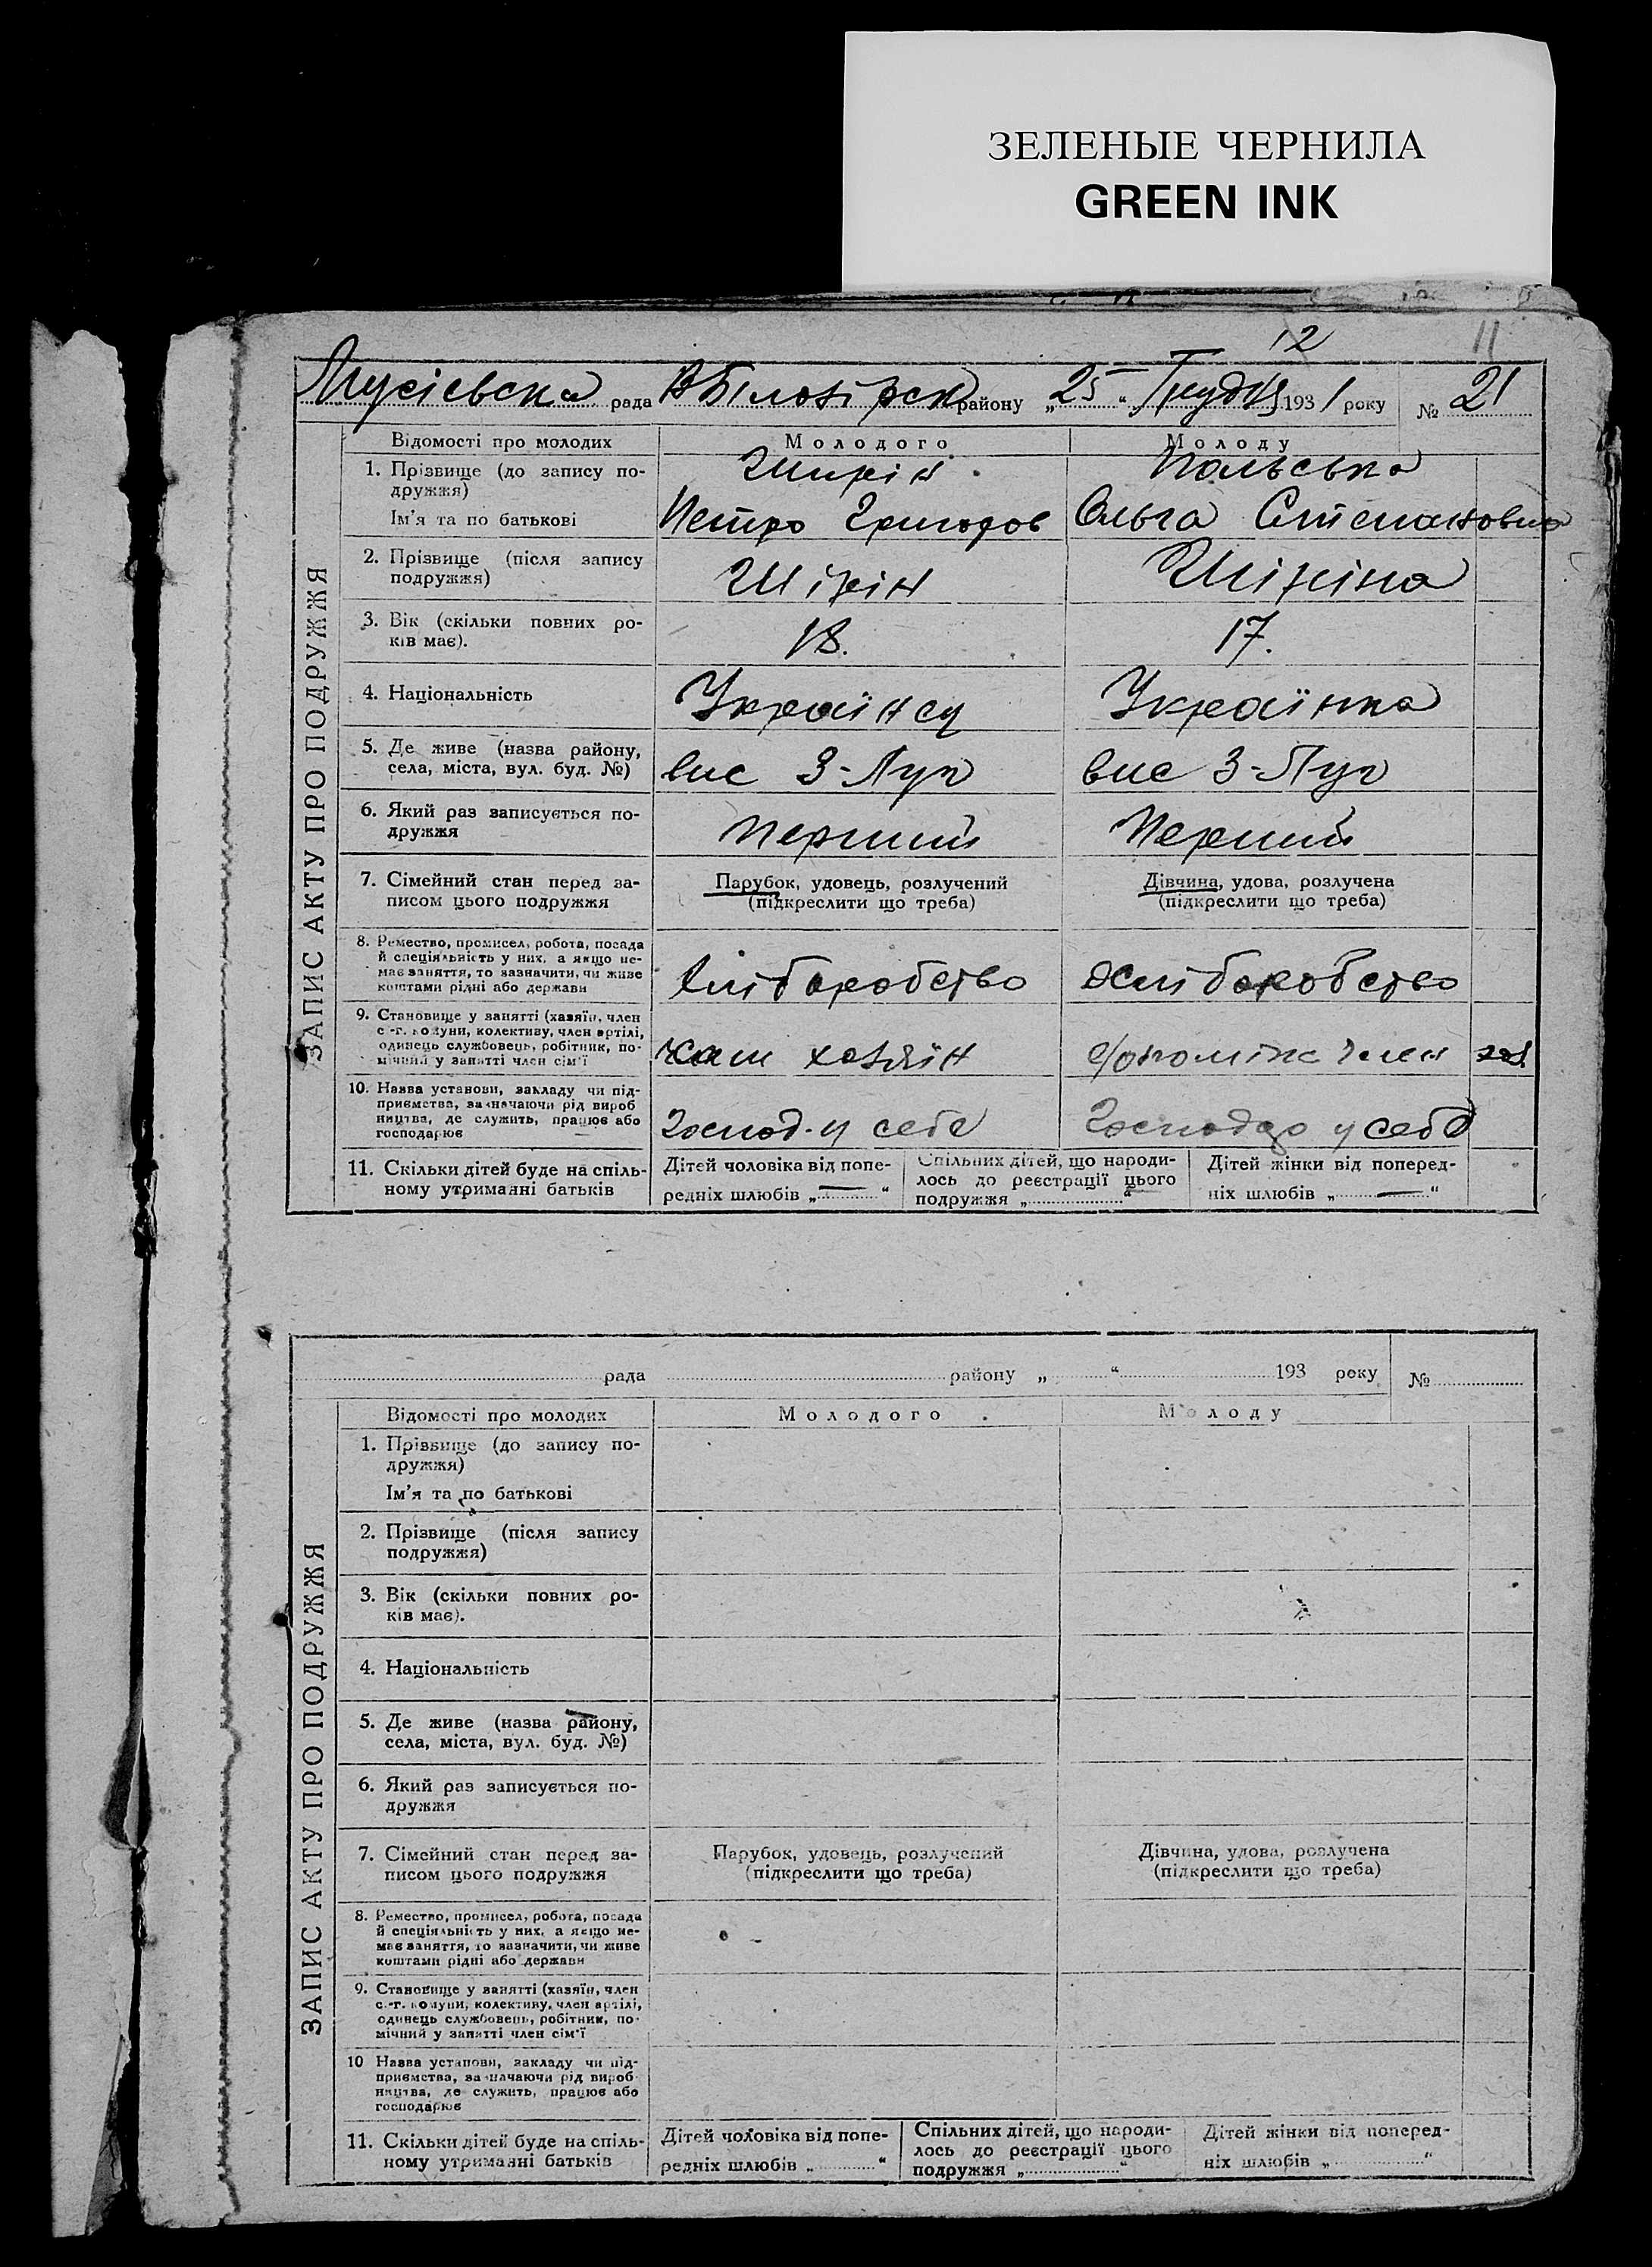 ЗЕЛЕНЫЕ ЧЕРНИЛА
GREEN INK
12 11
Мусієвська рада В Білозірськ району „25“ Грудня 1931 року № 21
ЗАПИС АКТУ ПРО ПОДРУЖЖЯ
Відомості про молодих Молодого Молоду
1. Прізвище (до запису по-
дружжя)
Ширін Польська
Ім’я та по батькові Петро Григоров Ольга Степановна
2. Прізвище (після запису
подружжя)
Шірін Шіріна
3. Вік (скільки повних ро-
ків має).
18. 17.
4. Національність Українец Українка
5. Де живе (назва району,
села, міста, вул. буд. №)
вис З-Луч вис З-Луч
6. Який раз записується по-
дружжя
Перший Перший
7. Сімейний стан перед за-
писом цього подружжя
Парубок, удовець, розлучений
(підкреслити що треба)
Дівчина, удова, розлучена
(підкреслити що треба)
8. Ремество, промисел, робота, посада
й спеціяльність у них, а якщо не-
має заняття, то зазначити, чи живе
коштами рідні або держави
хліборобство хліборобство
9. Становище у занятті (хазяїн, член
с.-г. комуни, колективу, член артілі,
одинець службовець, робітник, по-
мічний у занятті член сім’ї
хазяїн допоміж член
10. Назва установи, закладу чи під-
приємства, зазначаючи рід вироб
ництва, де служить, працює або
господарює
Господ. у себе Господар у себе
11. Скільки дітей буде на спіль-
ному утриманні батьків
Дітей чоловіка від попе-
редніх шлюбів „—“
Спільних дітей, що народи-
лось до реєстрації цього
подружжя „ “
Дітей жінки від поперед-
ніх шлюбів „—“
рада району „ “ 193 року №
ЗАПИС АКТУ ПРО ПОДРУЖЖЯ
Відомості про молодих Молодого Молоду
1. Прізвище (до запису по-
дружжя)
Ім’я та по батькові
2. Прізвище (після запису
подружжя)
3. Вік (скільки повних ро-
ків має).
4. Національність
5. Де живе (назва району,
села, міста, вул. буд. №)
6. Який раз записується по-
дружжя
7. Сімейний стан перед за-
писом цього подружжя
Парубок, удовець, розлучений
(підкреслити що треба)
Дівчина, удова, розлучена
(підкреслити що треба)
8. Ремество, промисел, робота, посада
й спеціяльність у них, а якщо не-
має заняття, то зазначити, чи живе
коштами рідні або держави
9. Становище у занятті (хазяїн, член
с.-г. комуни, колективу, член артілі,
одинець службовець, робітник, по-
мічний у занятті член сім’ї
10 Назва установи, закладу чи під-
приємства, зазначаючи рід вироб
ництва, де служить, працює або
господарює
11. Скільки дітей буде на спіль-
ному утриманні батьків
Дітей чоловіка від попе-
редніх шлюбів „ “
Спільних дітей, що народи-
лось до реєстрації цього
подружжя „ “
Дітей жінки від поперед-
ніх шлюбів „ “